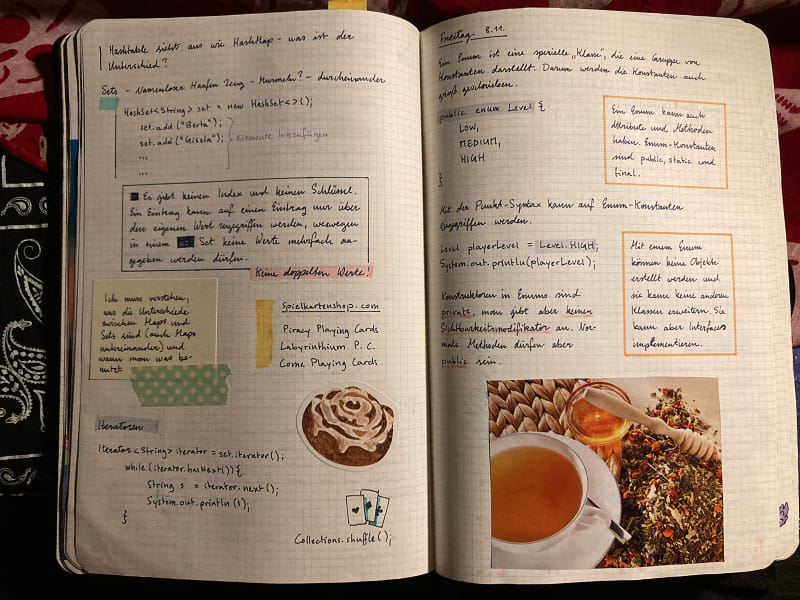 Hashtable sieht aus wie HashMap - was ist der
Unterschied?
Sets - Namenloser Haufen Zeug - Murmeln? - durcheinander
HashSet<String> set = new HashSet<>();
set.add("Berta");
set.add("Gisela");
...
...
Elemente hinzufügen
Es gibt keinen Index und keinen Schlüssel.
Ein Eintrag kann auf einen Eintrag nur über
den eigenen Wert zugegriffen werden, weswegen
in einem Set keine Werte mehrfach an-
gegeben werden dürfen.
Keine doppelten Werte!
Ich muss verstehen,
was die Unterschiede
zwischen Maps und
Sets sind (auch Maps
untereinander) und
wann man was be-
nutzt
Spielkartenshop.com
Piracy Playing Cards
Labyrinthium P. C.
Come Playing Cards
Iteratoren
Iterator<String> iterator = set.iterator();
while (iterator.hasNext()) {
String s = iterator.next();
System.out.println(s);
}
Collections.shuffle();
Freitag 8.11.
Ein Enum ist eine spezielle „Klasse", die eine Gruppe von
Konstanten darstellt. Darum werden die Konstanten auch
groß geschrieben.
public enum Level {
LOW,
MEDIUM,
HIGH
}
Ein Enum kann auch
Attribute und Methoden
haben. Enum-Konstanten
sind public, static und
final.
Mit der Punkt-Syntax kann auf Enum-Konstanten
zugegriffen werden.
Level playerLevel = Level.HIGH;
System.out.println(playerLevel);
Mit einem Enum
können keine Objekte
erstellt werden und
sie kann keine anderen
Klassen erweitern. Sie
kann aber Interfaces
implementieren.
Konstruktoren in Enums sind
private, man gibt aber keinen
Sichtbarkeitsmodifikator an. Nor-
male Methoden dürfen aber
public sein.